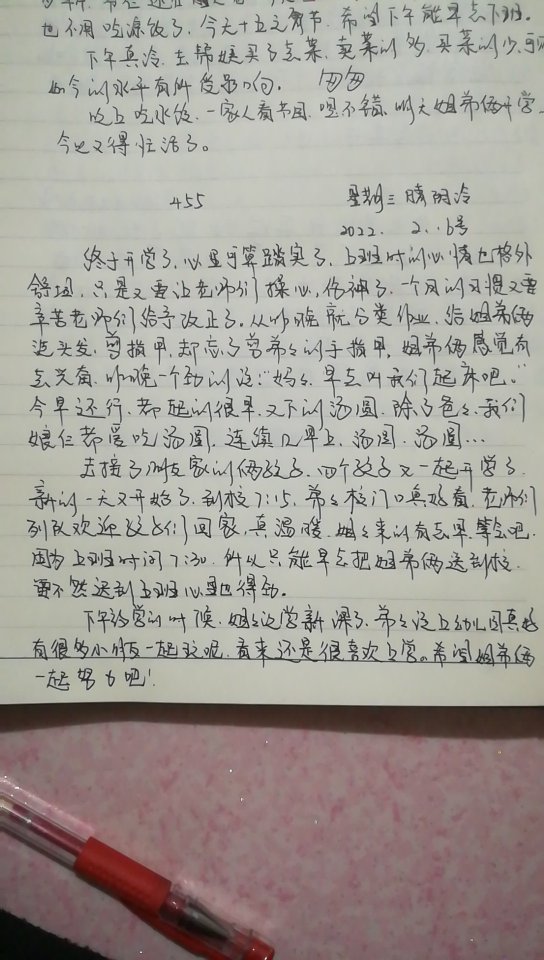 也不用吃凉饭了,今天十五元宵节,希望下午能早点下班。
下午真冷,去帮娘买了点菜,卖菜的多,买菜的少,可见
如今的水平有所受影响。
晚上吃水饺,一家人看节目,嗯不错,明天姐弟俩开学,
今起又得忙活了。
455 星期三 晴 阴冷
2022. 2. 16号
终于开学了,心里可算踏实了,上班时的心情也格外
舒坦,只是又要让老师们操心,伤神了,一个月的习惯又要
辛苦老师们给予改正了。从昨晚就分类作业,给姐弟俩
洗头发,剪指甲,却忘了曾弟弟的手指甲,姐弟俩感觉有
点兴奋,昨晚一个劲的说:“妈妈,早点叫我们起床吧。”
今早还行,都起的很早,又下的汤圆,除了爸爸,我们
娘仨都爱吃汤圆,连续几早上,汤圆,汤圆…
去接了朋友家的俩孩子,四个孩子又一起开学了,
新的一天又开始了,到校7:15,弟弟校门口真好看,老师们
列队欢迎孩子们回家,真温暖,姐姐来的有点早,等会吧,
因为上班时间7:30,所以只能早点把姐弟俩送到校,
要不然迟到上班心里也得劲。
下午放学的时候,姐姐说学新课了,弟弟说上幼儿园真好
有很多小朋友一起玩呢,看来还是很喜欢上学。希望姐弟俩
一起努力吧!